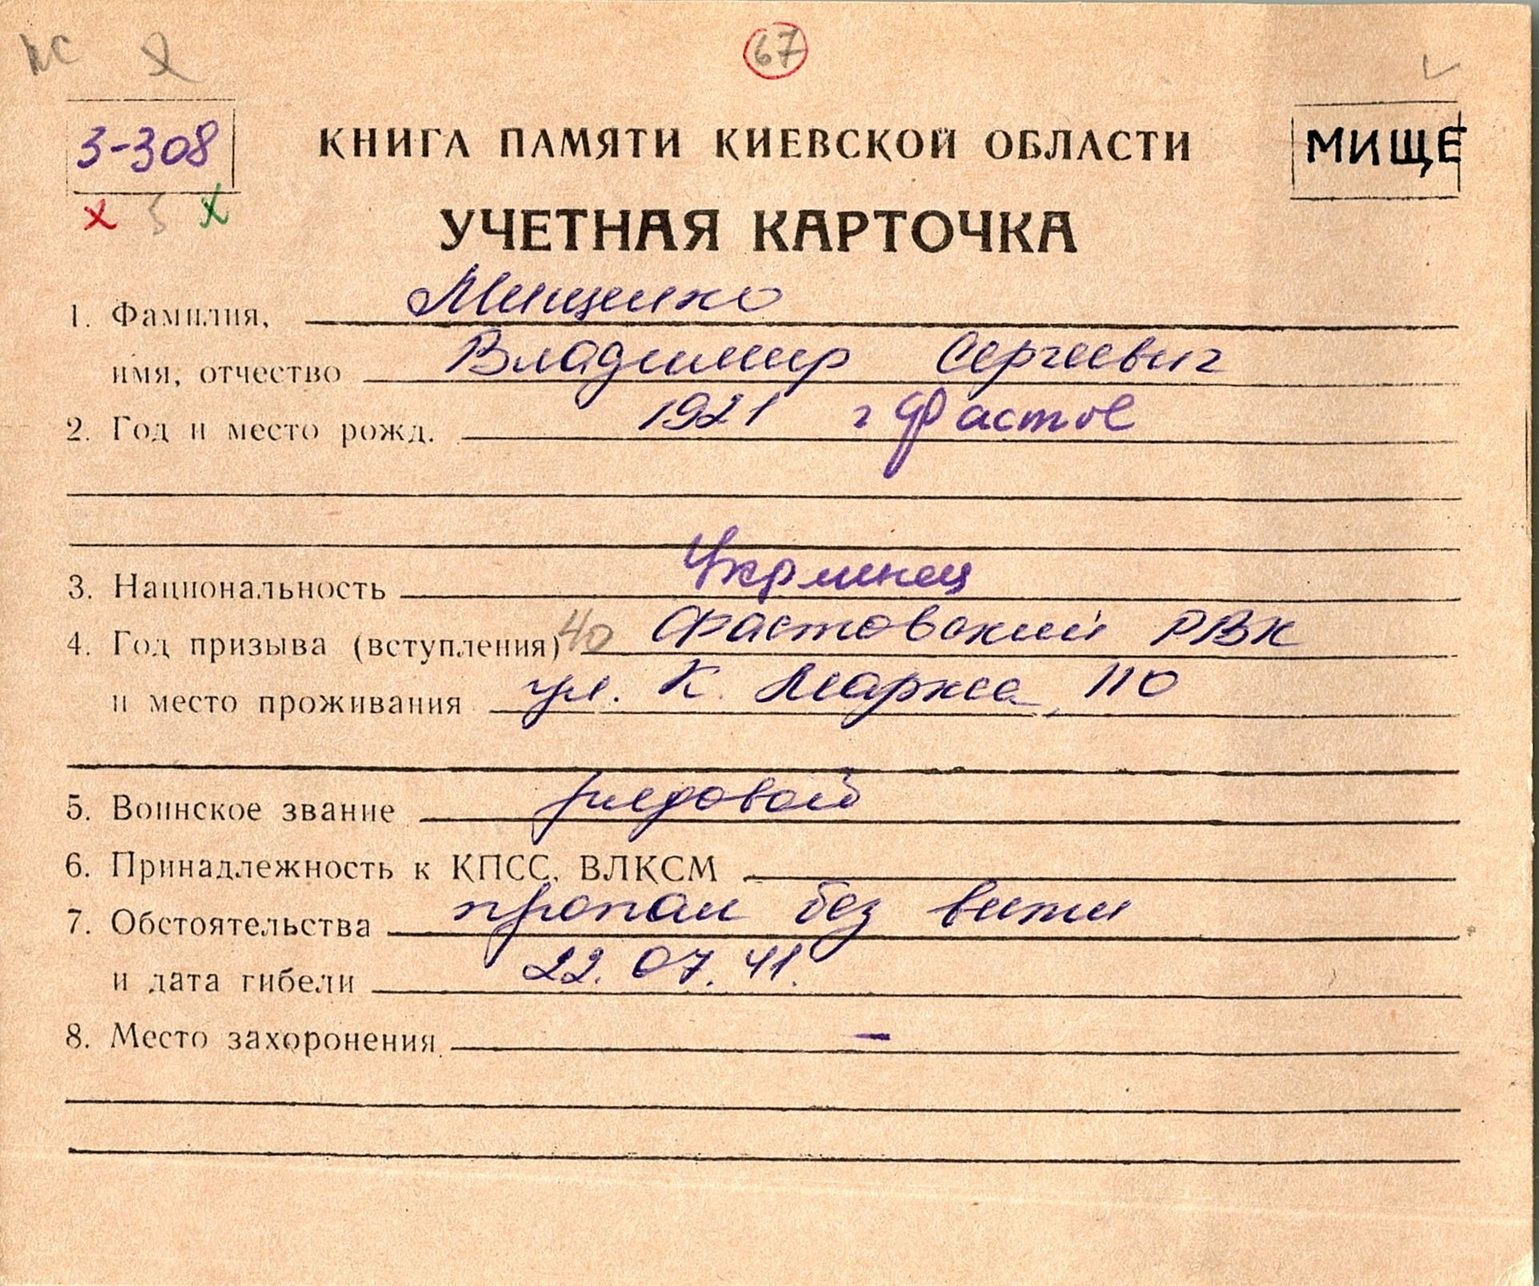 67
3-308
КНИГА ПАМЯТИ КИЕВСКОЙ ОБЛАСТИ
МИЩЕ
УЧЕТНАЯ КАРТОЧКА
1. Фамилия, Мищенко
имя, отчество Владимир Сергеевич
2. Год и место рожд. 1921 г Фастов
3. Национальность Украинец
4. Год призыва (вступления) 40 Фастовский РВК
и место проживания ул. К. Маркса, 110
5. Воинское звание рядовой
6. Принадлежность к КПСС, ВЛКСМ
7. Обстоятельства пропал без вести
и дата гибели 22.07.41.
8. Место захоронения –